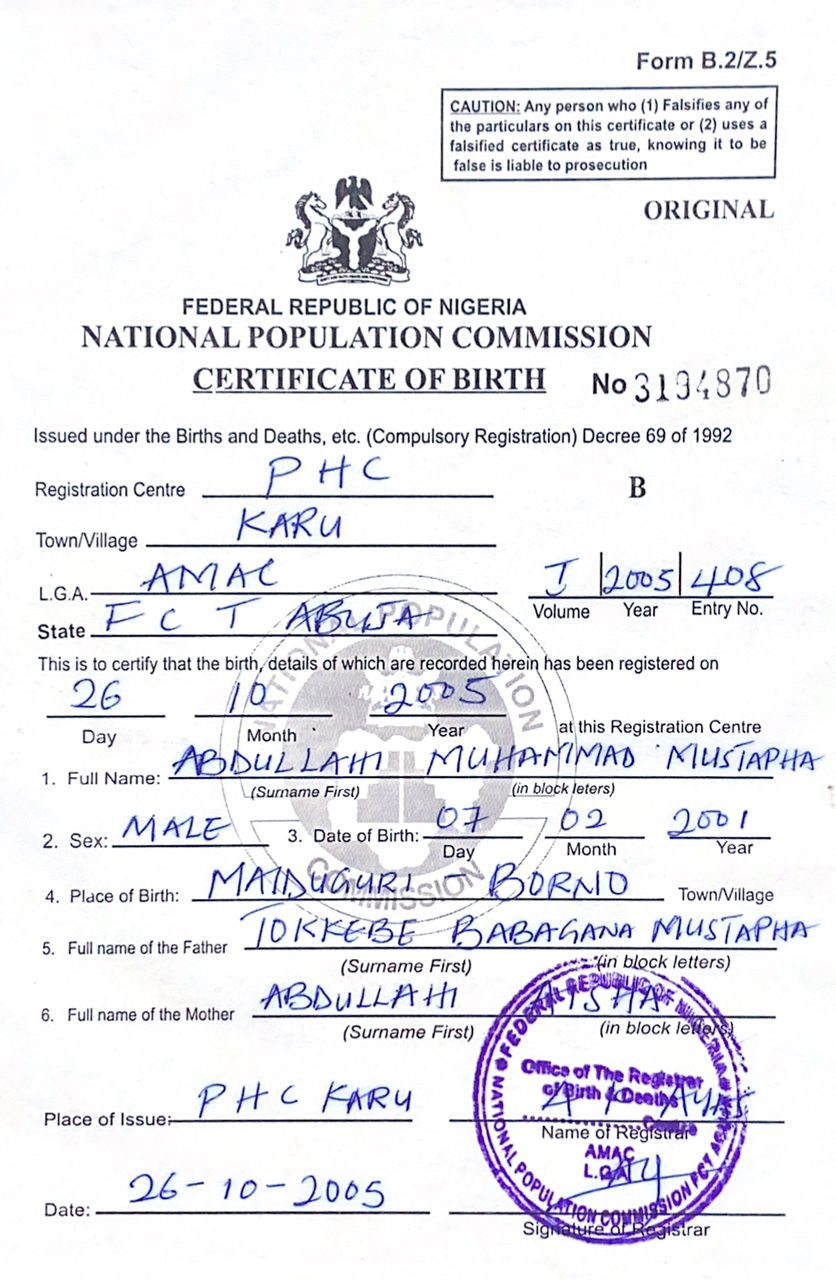 Form B.2/Z.5
CAUTION: Any person who (1) Falsifies any of
the particulars on this certificate or (2) uses a
falsified certificate as true, knowing it to be
false is liable to prosecution
ORIGINAL
FEDERAL REPUBLIC OF NIGERIA
NATIONAL POPULATION COMMISSION
CERTIFICATE OF BIRTH No 3194870
Issued under the Births and Deaths, etc. (Compulsory Registration) Decree 69 of 1992
Registration Centre PHC B
Town/Village KARU
L.G.A. AMAC J 2005 408
Volume Year Entry No.
State FCT ABUJA
This is to certify that the birth, details of which are recorded herein has been registered on
26 10 2005
Day Month Year at this Registration Centre
1. Full Name: ABDULLAHI MUHAMMAD MUSTAPHA
(Surname First) (in block leters)
2. Sex: MALE 3. Date of Birth: 07 02 2001
Day Month Year
4. Place of Birth: MAIDUGURI - BORNO Town/Village
5. Full name of the Father TOKKEBE BABAGANA MUSTAPHA
(Surname First) (in block letters)
6. Full name of the Mother ABDULLAHI AISHA
(Surname First) (in block letters)
Place of Issue: PHC KARU
Name of Registrar
Date: 26-10-2005
Signature of Registrar
NATIONAL POPULATION COMMISSION
FEDERAL REPUBLIC OF NIGERIA
Office of The Registrar
of Birth & Deaths
Centre
AMAC
L.G.A
NATIONAL POPULATION COMMISSION FCT